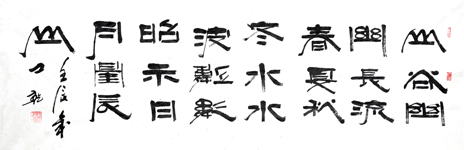 山谷幽
幽長流
春夏秋
冬水水
波粼粼
昭示日
月星辰
山
壬辰